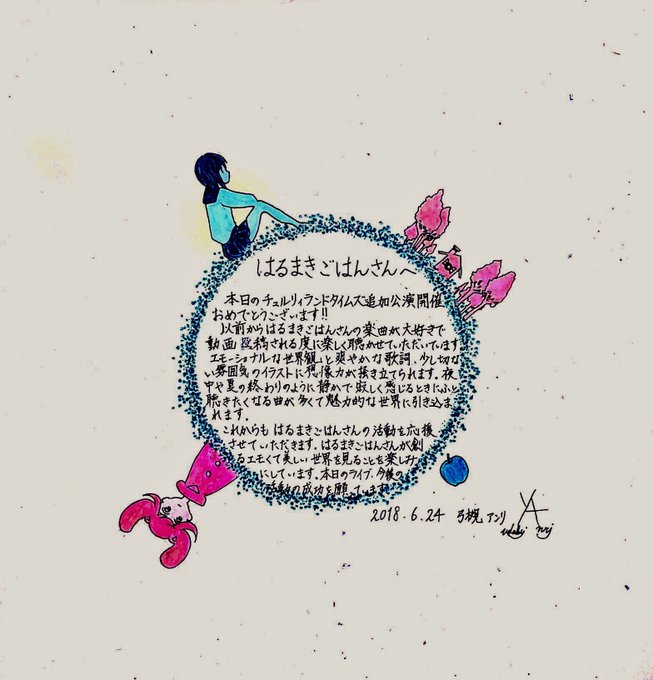 はるまきごはんさんへ
本日のチュルリラランドタイムズ追加公演開催
おめでとうございます!!
以前からはるまきごはんさんの楽曲が大好きで
動画投稿される度に楽しく聴かせていただいています
エモーショナルな世界観と爽やかな歌詞、少し切な
い雰囲気のイラストに想像力が掻き立てられます。夜
中や夏の終わりのように静かで寂しく感じるときにふと
聴きたくなる曲が多くて魅力的な世界に引き込ま
れます。
これからもはるまきごはんさんの活動を応援
させていただきます。はるまきごはんさんが創
るエモくて美しい世界を見ることを楽しみ
にしています。本日のライブ、今後の
活動の成功を願っています
2018.6.24 弓槻 アンリ